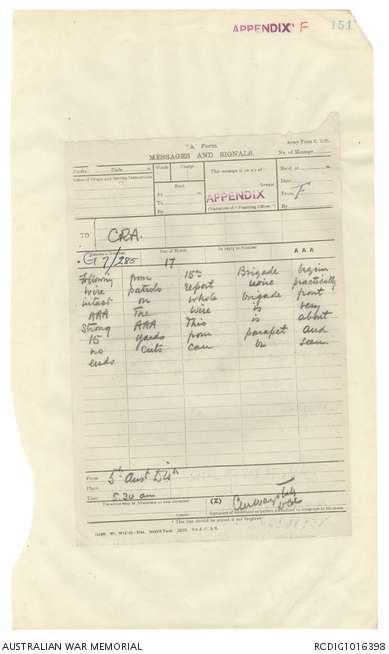 APPENDIX F 151
"A" Form.
Army Form C. 2121.
MESSAGES AND SIGNALS.
No. of Message
Prefix Code m.
Words
Charge
This message is on a/c of:
Recd. at m.
Office of Origin and Service Instructions.
Sent
Service.
Date
At m.
APPENDIX
From F
To
By
(Signature of "Franking Officer.")
By
TO
CRA.
Sender's Number
Day of Month
In reply to Number
AAA
G 7/285 17
Following from 15th Brigade begin
wire patrols report wire practically
intact on whole brigade front
AAA The wire is very
strong AAA This is about
15 yards from parapet and
no cuts can be seen.
ends
From 5th Aust Div
Place
Time 5.30 am
The above may be forwarded as now corrected.
(Z)
Censor.
Signature of Addressor or person authorised to telegraph in his name.
* This line should be erased if not required.
AUSTRALIAN WAR MEMORIAL
RCDIG1016398